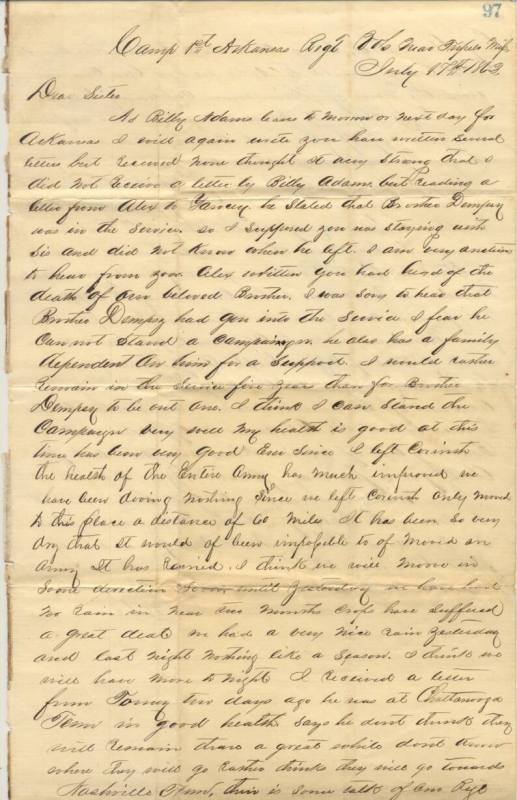 97
Camp 1st Arkansas Regt Vols Near Tupelo Miss
July 17th 1862
Dear Sister
As Billy Adams leave to morrow or next day for
Arkansas I will again write you have written several
letters but received none thought it very strang that I
did not receive a letter by Billy Adams, but reading a
letter from Alex to he stated that Brother Dempsey
was in the service. so I supposed you was staying with
Sis and did not know when he left. I am very anxious
to hear from you Alex written you had heard of the
death of our beloved Brother. I was sorry to hear that
Brother Dempsey had gon into the service I fear he
can not stand a campaign. he also has a family
dependent on him for a support. I would rather
remain in the service five year than for Brother
Dempsey to be out one. I think I can stand the
campaign very well My health is good at this
time has been very good Ever Since I left Corinth
the health of the Entire Army has much improved we
have been dooing nothing Since we left Corinth only moved
to this place a distance of 60 miles It has been so very
dry that it would of been impossible to of moved an
Army It has rained. I think we will moove in
some direction soon until yesterday we have had
no rain in near two months crops have suffered
a great deal we had a very nice rain yesterday
and last night nothing like a season. I think we
will have more to night I received a letter
from Tommy two days ago he was at Chattanooga
Tenn in good health says he dont think they
will remain there a great while dont know
where they will go rather thinks they will go towards
Nashville Tenn, thire is some talk of our Regt